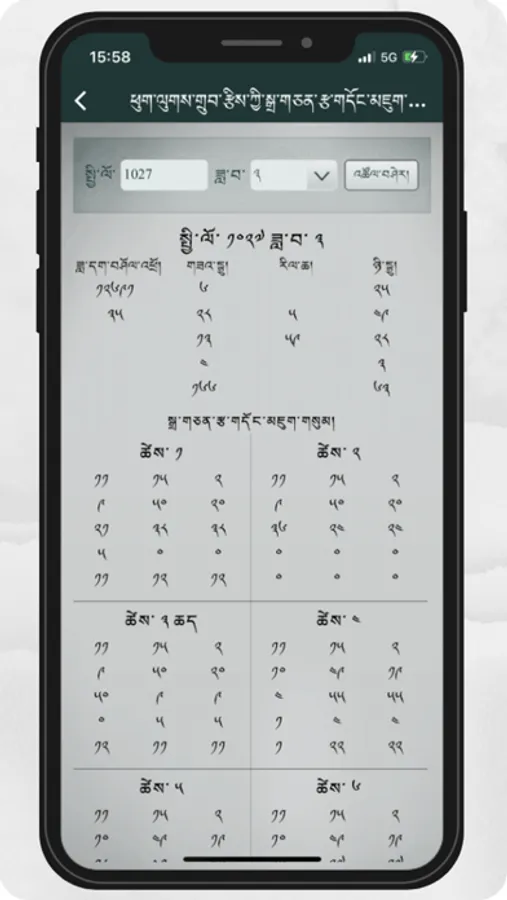 15:58 5G
ཕུག་ལུགས་གྲུབ་རྩིས་ཀྱི་སྒྲ་གཅན་རྩ་གདོང་མཇུག་...
སྤྱི་ལོ་ 1027 ཟླ་བ་ ༣ འཚོལ་བཤེར།
སྤྱི་ལོ་ ༡༠༢༧ ཟླ་བ་ ༣
ཟླ་དག་བཤོལ་འཕྲོ། གཟའ་སྡུ། རིལ་ཆ། ཉི་སྡུ།
༡༢༦༩༡ ༦ ༢༥
༣༥ ༢༨ ༥ ༤༩
༡༣ ༥༩ ༢༨
༤ ༣
༡༦༦ ༦༣
སྒྲ་གཅན་རྩ་གདོང་མཇུག་གསུམ།
ཚེས་ ༡ ཚེས་ ༢
༡༡ ༡༥ ༢ ༡༡ ༡༥ ༢
༩ ༥༠ ༢༠ ༩ ༥༠ ༢༠
༢༡ ༣༨ ༣༨ ༣༦ ༢༤ ༢༤
༥ ༠ ༠ ༠ ༠ ༠
༡༡ ༡༢ ༡༢ ༠ ༠ ༠
ཚེས་ ༣ ཆད ཚེས་ ༤
༡༡ ༡༥ ༢ ༡༡ ༡༥ ༢
༩ ༥༠ ༢༠ ༡༠ ༤༩ ༡༩
༥༠ ༩ ༩ ༤ ༥༥ ༥༥
༠ ༥ ༥ ༡ ༤ ༤
༡༢ ༡༡ ༡༡ ༡ ༢༢ ༢༢
ཚེས་ ༥ ཚེས་ ༦
༡༡ ༡༥ ༢ ༡༡ ༡༥ ༢
༡༠ ༤༩ ༡༩ ༡༠ ༤༩ ༡༩